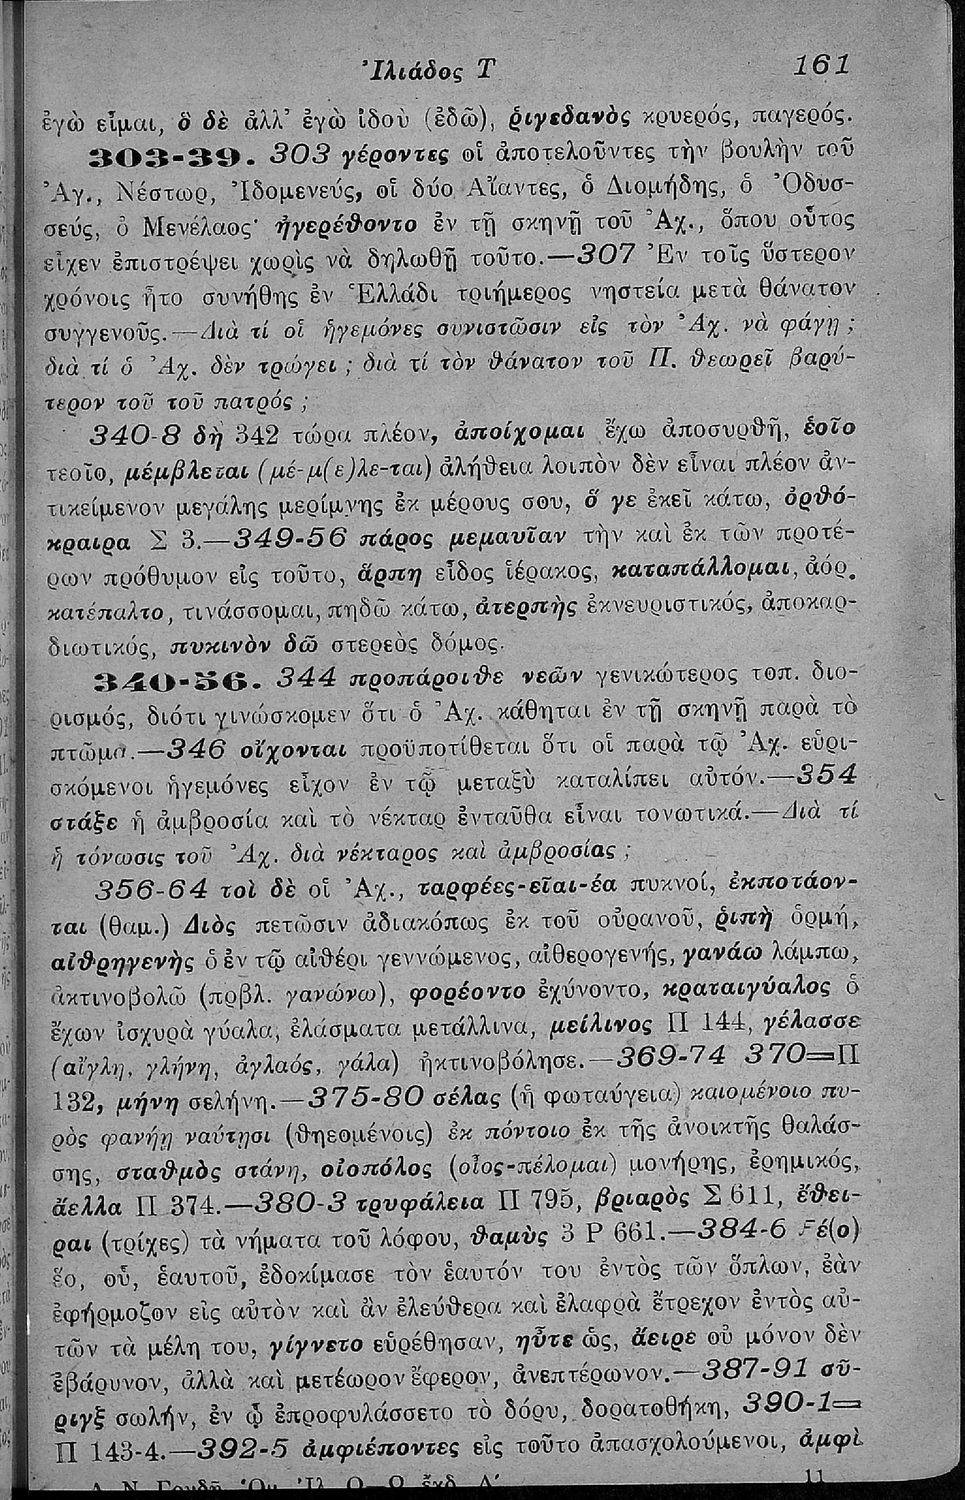 Ἰλιάδος Τ 161
ἐγὼ εἶμαι, ὃ δὲ ἀλλ’ ἐγὼ ἰδοὺ (ἐδῶ), ῥιγεδανὸς κρυερός, παγερός.
303-39. 303 γέροντες οἱ ἀποτελοῦντες τὴν βουλὴν τοῦ
Ἀγ., Νέστωρ, Ἰδομενεύς, οἱ δύο Αἴαντες, ὁ Διομήδης, ὁ Ὀδυσ-
σεύς, ὁ Μενέλαος· ἠγερέθοντο ἐν τῇ σκηνῇ τοῦ Ἀχ., ὅπου οὗτος
εἶχεν ἐπιστρέψει χωρὶς νὰ δηλωθῇ τοῦτο.—307 Ἐν τοῖς ὕστερον
χρόνοις ἦτο συνήθης ἐν Ἑλλάδι τριήμερος νηστεία μετὰ θάνατον
συγγενοῦς.—Διὰ τί οἱ ἡγεμόνες συνιστῶσιν εἰς τὸν Ἀχ. νὰ φάγῃ ;
διὰ τί ὁ Ἀχ. δὲν τρώγει ; διὰ τί τὸν θάνατον τοῦ Π. θεωρεῖ βαρύ-
τερον τοῦ τοῦ πατρός ;
340-8 δὴ 342 τώρα πλέον, ἀποίχομαι ἔχω ἀποσυρθῆ, ἑοῖο
τεοῖο, μέμβλεται (μέ-μ(ε)λε-ται) ἀλήθεια λοιπὸν δὲν εἶναι πλέον ἀν-
τικείμενον μεγάλης μερίμνης ἐκ μέρους σου, ὅ γε ἐκεῖ κάτω, ὀρθό-
κραιρα Σ 3.—349-56 πάρος μεμαυῖαν τὴν καὶ ἐκ τῶν προτέ-
ρων πρόθυμον εἰς τοῦτο, ἅρπη εἶδος ἱέρακος, καταπάλλομαι, ἀόρ.
κατέπαλτο, τινάσσομαι, πηδῶ κάτω, ἀτερπὴς ἐκνευριστικός, ἀποκαρ-
διωτικός, πυκινὸν δῶ στερεὸς δόμος.
340-56. 344 προπάροιθε νεῶν γενικώτερος τοπ. διο-
ρισμός, διότι γινώσκομεν ὅτι ὁ Ἀχ. κάθηται ἐν τῇ σκηνῇ παρὰ τὸ
πτῶμα.—346 οἴχονται προϋποτίθεται ὅτι οἱ παρὰ τῷ Ἀχ. εὑρι-
σκόμενοι ἡγεμόνες εἶχον ἐν τῷ μεταξὺ καταλίπει αὐτόν.—354
στάξε ἡ ἀμβροσία καὶ τὸ νέκταρ ἐνταῦθα εἶναι τονωτικά.—Διὰ τί
ἡ τόνωσις τοῦ Ἀχ. διὰ νέκταρος καὶ ἀμβροσίας ;
356-64 τοὶ δὲ οἱ Ἀχ., ταρφέες-εῖαι-έα πυκνοί, ἐκποτάον-
ται (θαμ.) Διὸς πετῶσιν ἀδιακόπως ἐκ τοῦ οὐρανοῦ, ῥιπὴ ὁρμή,
αἰθρηγενὴς ὁ ἐν τῷ αἰθέρι γεννώμενος, αἰθερογενής, γανάω λάμπω,
ἀκτινοβολῶ (πρβλ. γανώνω), φορέοντο ἐχύνοντο, κραταιγύαλος ὁ
ἔχων ἰσχυρὰ γύαλα, ἐλάσματα μετάλλινα, μείλινος Π 144, γέλασσε
(αἴγλη, γλήνη, ἀγλαός, γάλα) ἠκτινοβόλησε.—369-74 370=Π
132, μήνη σελήνη.—375-80 σέλας (ἡ φωταύγεια) καιομένοιο πυ-
ρὸς φανήῃ ναύτῃσι (θηεομένοις) ἐκ πόντοιο ἐκ τῆς ἀνοικτῆς θαλάσ-
σης, σταθμὸς στάνη, οἰοπόλος (οἶος-πέλομαι) μονήρης, ἐρημικός,
ἄελλα Π 374.—380-3 τρυφάλεια Π 795, βριαρὸς Σ 611, ἔθει-
ραι (τρίχες) τὰ νήματα τοῦ λόφου, θαμὺς 3 Ρ 661.—384-6 Ϝέ(ο)
ἕο, οὗ, ἑαυτοῦ, ἐδοκίμασε τὸν ἑαυτόν του ἐντὸς τῶν ὅπλων, ἐὰν
ἐφήρμοζον εἰς αὐτὸν καὶ ἂν ἐλεύθερα καὶ ἐλαφρὰ ἔτρεχον ἐντὸς αὐ-
τῶν τὰ μέλη του, γίγνετο εὑρέθησαν, ηὖτε ὡς, ἄειρε οὐ μόνον δὲν
ἐβάρυνον, ἀλλὰ καὶ μετέωρον ἔφερον, ἀνεπτέρωνον.—387-91 σῦ-
ριγξ σωλήν, ἐν ᾧ ἐπροφυλάσσετο τὸ δόρυ, δορατοθήκη, 390-1=
Π 143-4.—392-5 ἀμφιέποντες εἰς τοῦτο ἀπασχολούμενοι, ἀμφὶ
11